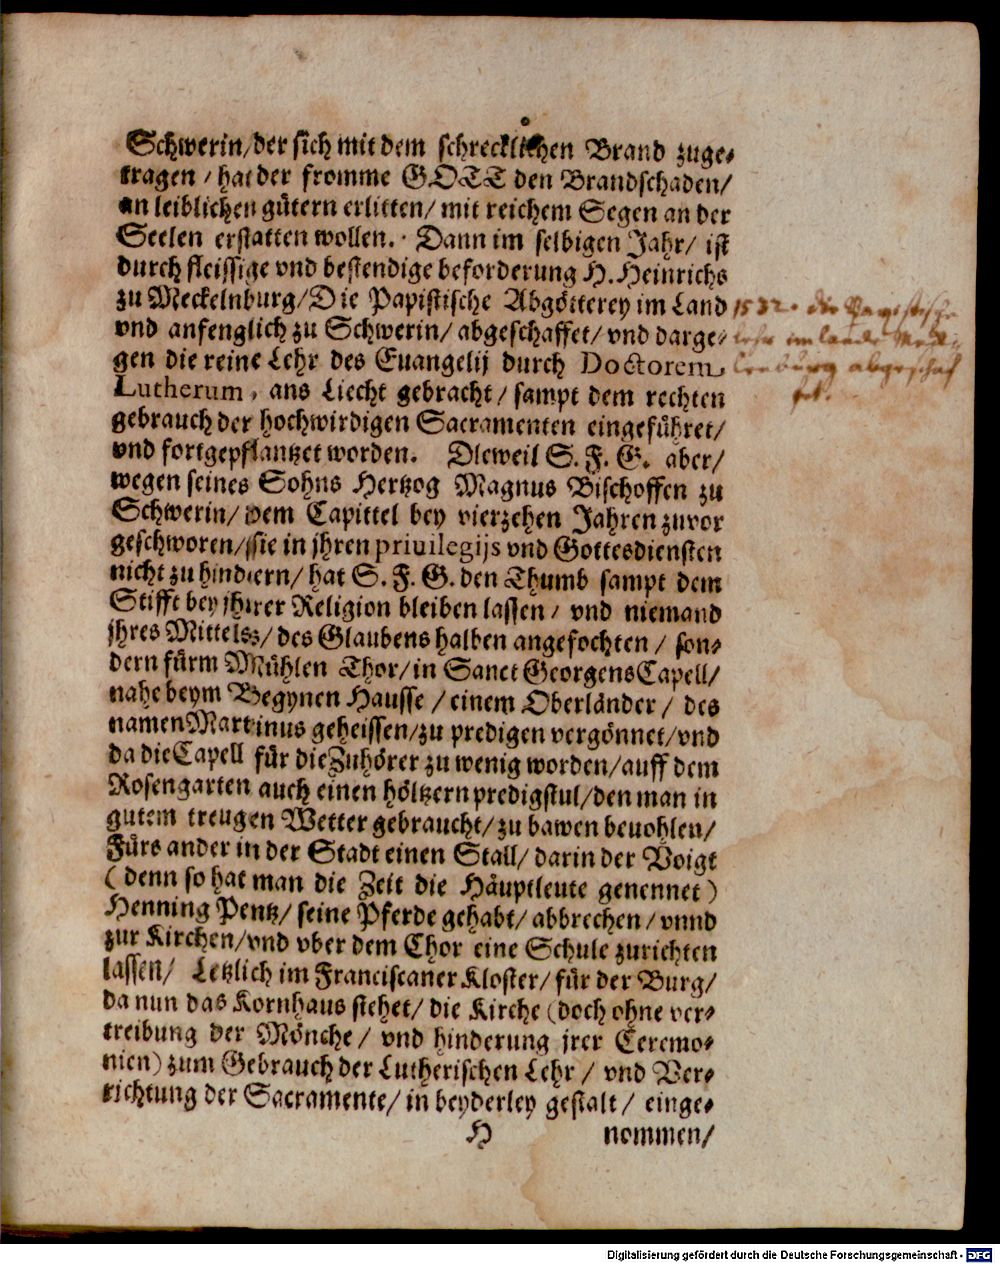 Schwerin/ der sich mit dem schrecklichen Brand zuge-
tragen / hat der fromme GOTT den Brandschaden/
an leiblichen gütern erlitten/ mit reichem Segen an der
Seelen erstatten wollen. Dann im selbigen Jahr/ ist
durch fleissige vnd bestendige beforderung H. Heinrichs
zu Meckelnburg/ Die Papistische Abgötterey im Land
vnd anfenglich zu Schwerin/ abgeschaffet/ vnd darge-
gen die reine Lehr des Euangelij durch Doctorem
Lutherum, ans Liecht gebracht/ sampt dem rechten
gebrauch der hochwirdigen Sacramenten eingeführet/
vnd fortgepflantzet worden. Dieweil S. F. G. aber/
wegen seines Sohns Hertzog Magnus Bischoffen zu
Schwerin/ dem Capittel bey vierzehen Jahren zuvor
geschworen/ sie in jhren priuilegijs vnd Gottesdiensten
nicht zu hindern/ hat S. F. G. den Thumb sampt dem
Stifft bey jhrer Religion bleiben lassen/ vnd niemand
jhres Mittels/ des Glaubens halben angefochten / son-
dern fürm Mühlen Thor/ in Sanct Georgens Capell/
nahe beym Begynen Hausse / einem Oberländer / des
namen Martinus geheissen/ zu predigen vergönnet/ vnd
da die Capell für die Zuhörer zu wenig worden/ auff dem
Rosengarten auch einen höltzern predigstul/ den man in
gutem treugen Wetter gebraucht/ zu bawen beuohlen/
Fürs ander in der Stadt einen Stall/ darin der Voigt
( denn so hat man die Zeit die Häuptleute genennet )
Henning Pentz/ seine Pferde gehabt/ abbrechen / vnnd
zur Kirchen/ vnd vber dem Chor eine Schule zurichten
lassen/ Letzlich im Franciscaner Kloster/ für der Burg/
da nun das Kornhaus stehet/ die Kirche (doch ohne ver-
treibung der Mönche / vnd hinderung jrer Ceremo-
nien) zum Gebrauch der Lutherischen Lehr / vnd Ver-
richtung der Sacramente/ in beyderley gestalt/ einge-
H nommen/
1532. die Papistische
lehr im lande Meck-
lenburg abgeschaf
fet.
Digitalisierung gefördert durch die Deutsche Forschungsgemeinschaft - DFG